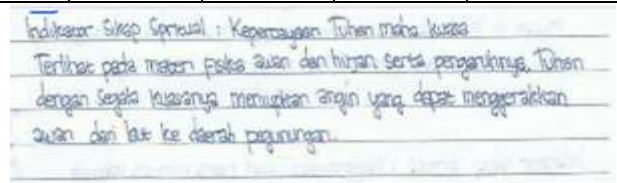 Indikator Sikap Spritual : Kepercayaan Tuhan maha kuasa
Terlihat pada materi Fisika awan dan hujan serta pengaruhnya, Tuhan
dengan segala kuasanya meniupkan angin yang dapat menggerakkan
awan dari laut ke daerah pegunungan.